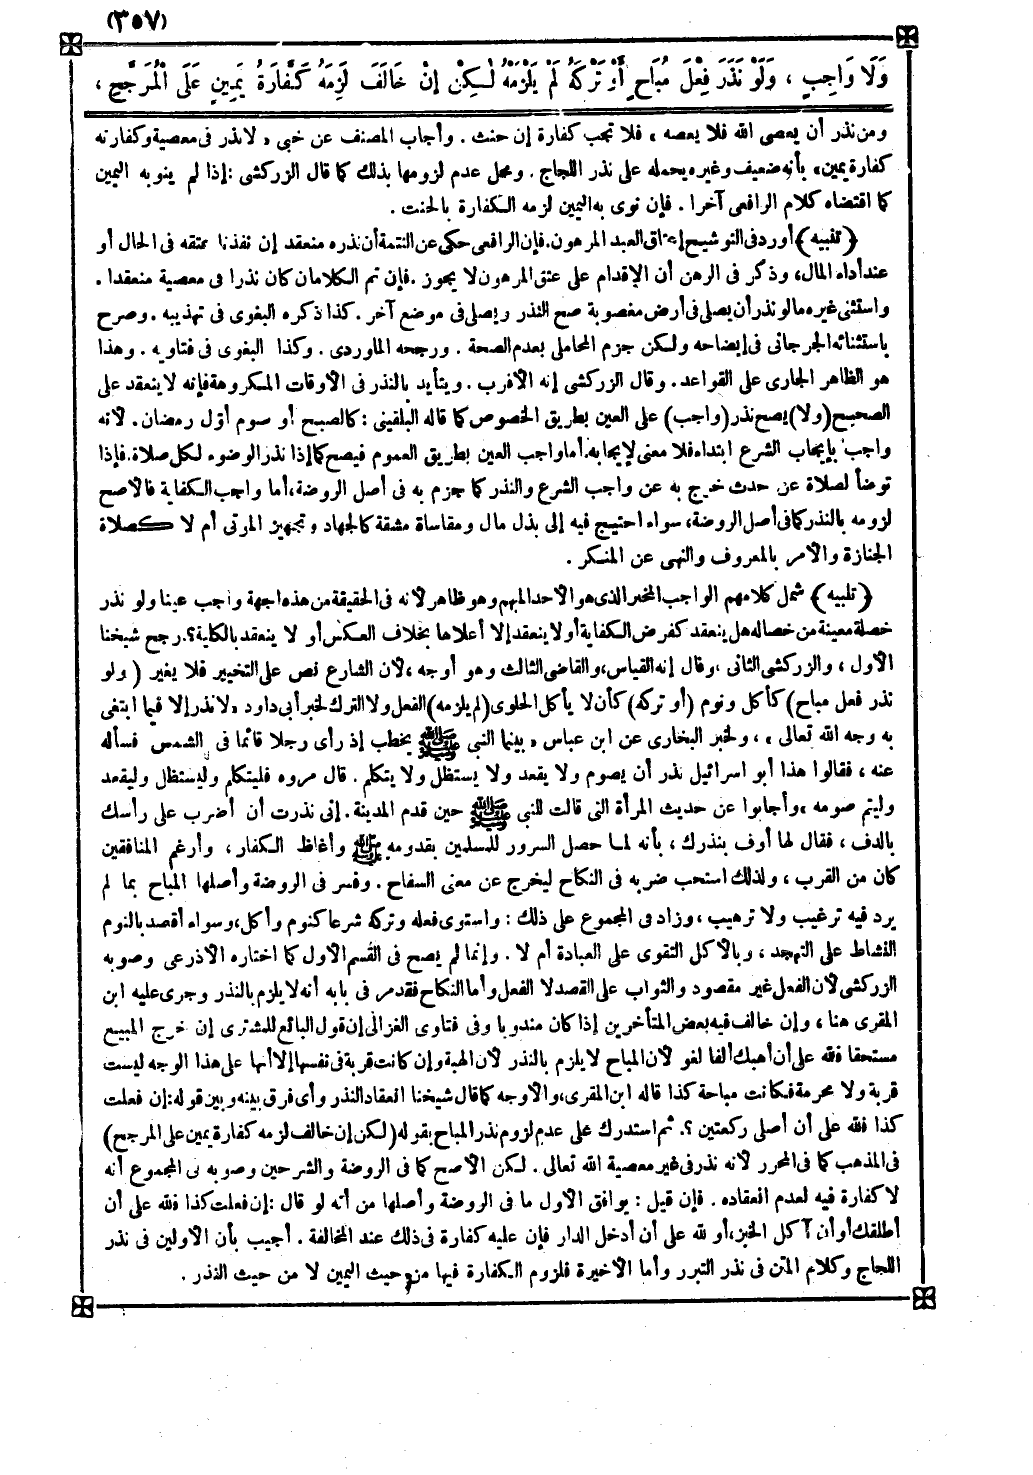 (٣٥٧)
وَلَا وَاجِبٍ ، وَلَوْ نَذَرَ فِعْلَ مُبَاحٍ أَوْ تَرْكَهُ لَمْ يَلْزَمْهُ لٰكِنْ إِنْ خَالَفَ لَزِمَهُ كَفَّارَةُ يَمِينٍ عَلَى الْمُرَجَّحِ ،
ومن نذر أن يعصى الله فلا يعصه ، فلا تجب كفارة إن حنث . وأجاب المصنف عن خبر « لا نذر فى معصية وكفارته
كفارة يمين» بأنه ضعيف وغيره يحمله على نذر اللجاج . ومحل عدم لزومها بذلك كما قال الزركشى : إذا لم ينو به اليمين
كما اقتضاه كلام الرافعى آخرا . فإن نوى به اليمين لزمه الكفارة بالحنث .
﴿ تنبيه ﴾ أورد فى التوشيح إعتاق العبد المرهون. فإن الرافعى حكى عن التتمة أن نذره منعقد إن نفذنا عتقه فى الحال أو
عند أداء المال، وذكر فى الرهن أن الإقدام على عتق المرهون لا يجوز . فإن تم الكلامان كان نذرا فى معصية منعقدا .
واستثنى غيره ما لو نذر أن يصلى فى أرض مغصوبة صح النذر ويصلى فى موضع آخر . كذا ذكره البغوى فى تهذيبه . وصرح
باستثنائه الجرجانى فى إيضاحه ولكن جزم المحاملى بعدم الصحة . ورجحه الماوردى . وكذا البغوى فى فتاويه . وهذا
هو الظاهر الجارى على القواعد . وقال الزركشى إنه الأقرب . ويتأيد بالنذر فى الأوقات المكروهة فإنه لا ينعقد على
الصحيح (ولا) يصح نذر (واجب) على العين بطريق الخصوص كما قاله البلقينى : كالصبح أو صوم أوّل رمضان . لأنه
واجب بإيجاب الشرع ابتداء فلا معنى لإيجابه. أما واجب العين بطريق العموم فيصح كما إذا نذر الوضوء لكل صلاة. فإذا
توضأ لصلاة عن حدث خرج به عن واجب الشرع والنذر كما جزم به فى أصل الروضة، أما واجب الكفاية فالأصح
لزومه بالنذر كما فى أصل الروضة، سواء احتيج فيه إلى بذل مال ومقاساة مشقة كالجهاد وتجهيز الموتى أم لا كصلاة
الجنازة والأمر بالمعروف والنهى عن المنكر .
﴿ تنبيه ﴾ شمل كلامهم الواجب المخير الذى هو الأحد المبهم وهو ظاهر لأنه فى الحقيقة من هذه الجهة واجب عينا ولو نذر
خصلة معينة من خصاله هل ينعقد كفرض الكفاية أو لا ينعقد إلا أعلاها بخلاف العكس أو لا ينعقد بالكلية ؟. رجح شيخنا
الأول ، والزركشى الثانى ، وقال إنه القياس، والقاضى الثالث وهو أوجه ، لأن الشارع نص على التخيير فلا يغير ( ولو
نذر فعل مباح) كأكل ونوم (أو تركه) كأن لا يأكل الحلوى (لم يلزمه) الفعل ولا الترك لخبر أبى داود « لا نذر إلا فيما ابتغى
به وجه الله تعالى » ، ولخبر البخارى عن ابن عباس « بينما النبى ﷺ يخطب إذ رأى رجلا قائما فى الشمس فسأله
عنه ، فقالوا هذا أبو اسرائيل نذر أن يصوم ولا يقعد ولا يستظل ولا يتكلم . قال مروه فليتكلم وليستظل وليقعد
وليتم صومه » وأجابوا عن حديث المرأة التى قالت للنبى ﷺ حين قدم المدينة . إنى نذرت أن أضرب على رأسك
بالدف ، فقال لها أوف بنذرك ، بأنه لما حصل السرور للمسلمين بقدومه ﷺ وأغاظ الكفار ، وأرغم المنافقين
كان من القرب ، ولذلك استحب ضربه فى النكاح ليخرج عن معنى السفاح . وفسر فى الروضة وأصلها المباح بما لم
يرد فيه ترغيب ولا ترهيب ، وزاد فى المجموع على ذلك : واستوى فعله وتركه شرعا كنوم وأكل، وسواء أقصد بالنوم
النشاط على التهجد ، وبالأكل التقوى على العبادة أم لا . وإنما لم يصح فى القسم الأول كما اختاره الأذرعى وصوبه
الزركشى لأن الفعل غير مقصود والثواب على القصد لا الفعل وأما النكاح فقد مر فى بابه أنه لا يلزم بالنذر وجرى عليه ابن
المقرى هنا ، وإن خالف فيه بعض المتأخرين إذا كان مندوبا وفى فتاوى الغزالى إن قول البائع للمشترى إن خرج المبيع
مستحقا فلله على أن أهبك ألفا لغو لأن المباح لا يلزم بالنذر لأن الهبة وإن كانت قربة فى نفسها إلا أنها على هذا الوجه ليست
قربة ولا محرمة فكانت مباحة كذا قاله ابن المقرى، والأوجه كما قال شيخنا انعقاد النذر وأى فرق بينه وبين قوله : إن فعلت
كذا فلله على أن أصلى ركعتين ؟. ثم استدرك على عدم لزوم نذر المباح بقوله (لكن إن خالف لزمه كفارة يمين على المرجح)
فى المذهب كما فى المحرر لأنه نذر فى غير معصية الله تعالى . لكن الأصح كما فى الروضة والشرحين وصوبه فى المجموع أنه
لا كفارة فيه لعدم انعقاده . فإن قيل : يوافق الأول ما فى الروضة وأصلها من أنه لو قال : إن فعلت كذا فلله على أن
أطلقك أو أن آكل الخبز، أو لله على أن أدخل الدار فإن عليه كفارة فى ذلك عند المخالفة . أجيب بأن الأولين فى نذر
اللجاج وكلام المتن فى نذر التبرر وأما الأخيرة فلزوم الكفارة فيها من حيث اليمين لا من حيث النذر .